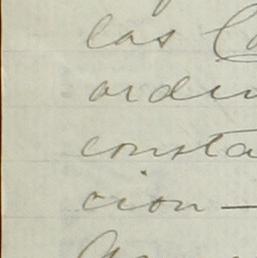 las
orden
consta
cion—